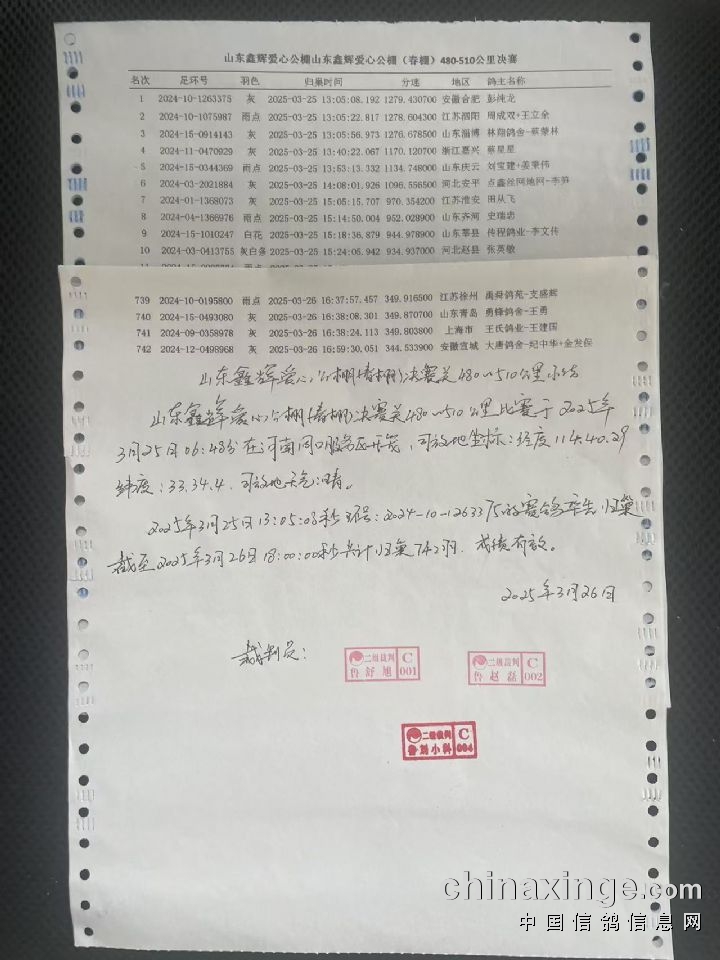 山东鑫辉爱心公棚山东鑫辉爱心公棚（春棚）480-510公里决赛
名次 足环号 羽色 归巢时间 分速 地区 鸽主名称
1 2024-10-1263375 灰 2025-03-25 13:05:08.192 1279.430700 安徽合肥 彭纯龙
2 2024-10-1075987 雨点 2025-03-25 13:05:22.817 1278.604300 江苏泗阳 周成双+王立余
3 2024-15-0914143 灰 2025-03-25 13:05:56.973 1276.678500 山东淄博 林翔鸽舍-蔡荣林
4 2024-11-0470929 灰 2025-03-25 13:40:22.067 1170.120700 浙江嘉兴 蔡星星
5 2024-15-0344369 雨点 2025-03-25 13:53:13.332 1134.748000 山东庆云 刘宝建+姜秉伟
6 2024-03-2021884 灰 2025-03-25 14:08:01.926 1096.556500 河北安平 点鑫丝网地网-李笋
7 2024-01-1368073 灰 2025-03-25 15:05:15.707 970.354200 江苏淮安 田从飞
8 2024-04-1366976 雨点 2025-03-25 15:14:50.004 952.028900 山东齐河 史瑞忠
9 2024-15-1010247 白花 2025-03-25 15:18:36.879 944.978900 山东莘县 传程鸽业-李文传
10 2024-03-0413755 灰白条 2025-03-25 15:24:06.942 934.937000 河北赵县 张英敏
739 2024-10-0195800 雨点 2025-03-26 16:37:57.457 349.916500 江苏徐州 禹舜鸽苑-支盛辉
740 2024-15-0493080 灰 2025-03-26 16:38:08.301 349.870700 山东青岛 勇锋鸽舍-王勇
741 2024-09-0358978 灰 2025-03-26 16:38:24.113 349.803800 上海市 王氏鸽业-王建国
742 2024-12-0498968 灰 2025-03-26 16:59:30.051 344.533900 安徽宣城 大唐鸽舍-纪中华+金发保
山东鑫辉爱心公棚(春棚)决赛关480～510公里小结
山东鑫辉爱心公棚(春棚)决赛关480～510公里比赛于2025年
3月25日06:48分在河南周口服务区开笼，司放地坐标：经度114.40.29
纬度：33.34.4．司放地天气：晴。
2025年3月25日13:05:08秒环号：2024-10-1263375的赛鸽率先归巢
截至2025年3月26日18:00:00秒共计归巢742羽．成绩有效。
2025年3月26日
裁判员：
二级裁判 C
鲁 舒旭 001
二级裁判 C
鲁 赵磊 002
二级裁判 C
鲁 刘小科 004
chinaxinge.com
中国信鸽信息网